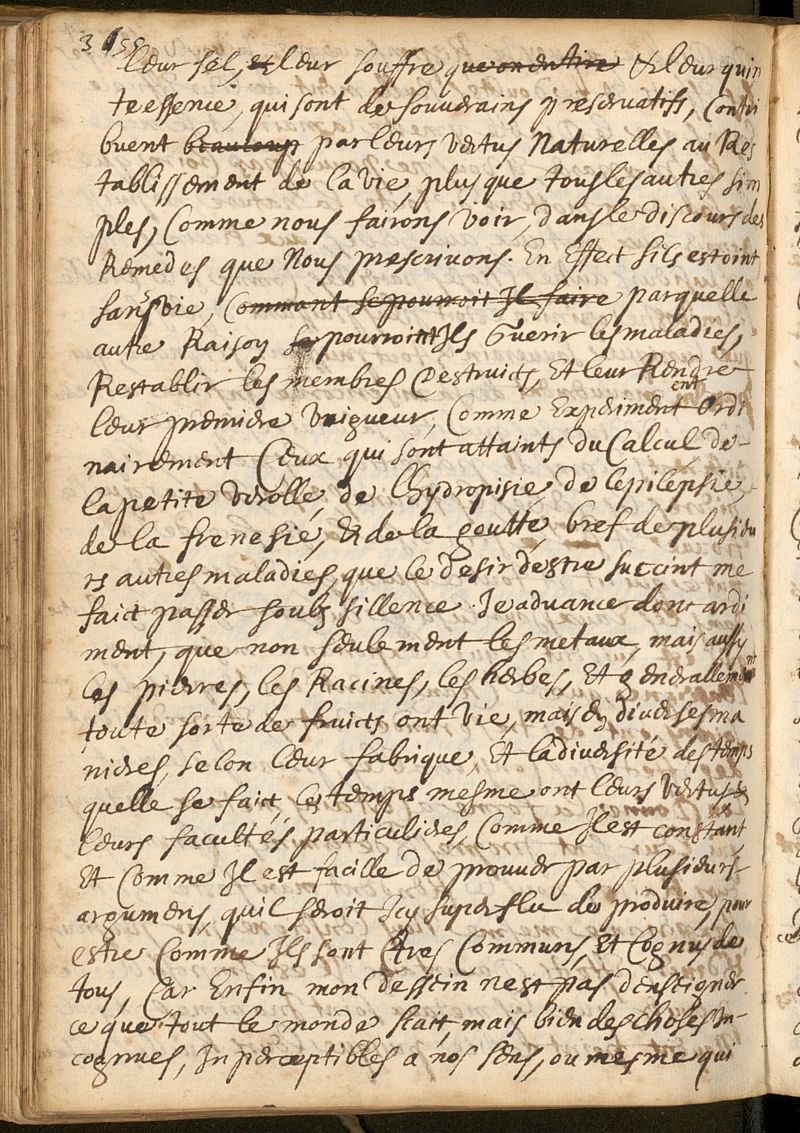 3
leur sel, et leur souffre que on en tire & leur quin
tessence, qui sont de souverains preservatifs, contri
buent beaucoup par leurs vertus Naturelles au Res
tablissement de la vie, plus que tous les autres sim
ples, Comme nous fairons voir, dans le discours des
Remedes que Nous prescrivons. En Effect sils estoint
sans vie, Commant se pourroit Il faire par quelle
autre Raison se pourroint Ils Guerir les maladies,
Restablir les membres Destruicts, Et leur Rendre
leur premiere vigueur, Comme Experimentent Ordi
nairement Ceux qui sont attaints du Calcul de
la petite verolle, de lhydropisie, de lepilepsie,
de la frenesie, & de la goutte, bref de plusieu
rs autres maladies, que le desir destre succint me
faict passer soubs sillence. Je advance donc ardi
ment, que non seulement les metaux, mais aussy
les pierres, les Racines, les herbes, Et generallement
toute sorte de fruicts ont vie, mais en diverses ma
nieres, selon leur fabrique, Et la diversité des temps
quelle se faict, les temps mesme ont leurs vertus &
leurs facultés particulieres, Comme Il est constant,
Et Comme Il est facille de prouver par plusieurs
argumens, quil seroit Icy superflu de produire, pour
estre Comme Ils sont tres Communs, Et Cognus de
tous, Car Enfin mon dessein nest pas denseigner
ce que tout le monde scait, mais bien des choses In
cognues, Inperceptibles a nos sens, ou mesme qui